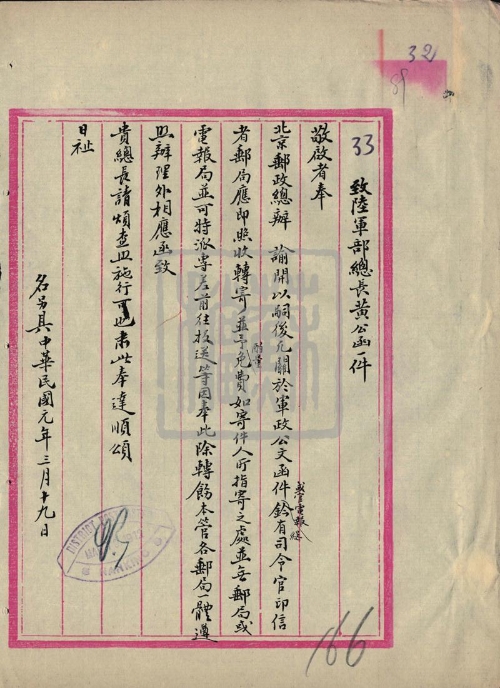 32
33
致陸軍部總長黃公函一件
敬啟者奉
北京郵政總辦 諭開以嗣後凡關於軍政公文函件鈐有司令官印信
者郵局應即照收轉寄並予免費如寄件人所指寄之處並無郵局或
電報局並可特派專差前往投送等因奉此除轉飭本管各郵局一體遵
照辦理外相應函致
貴總長請煩查照施行可也耑此奉達順頌
日祉
名另具中華民國元年三月十九日
166